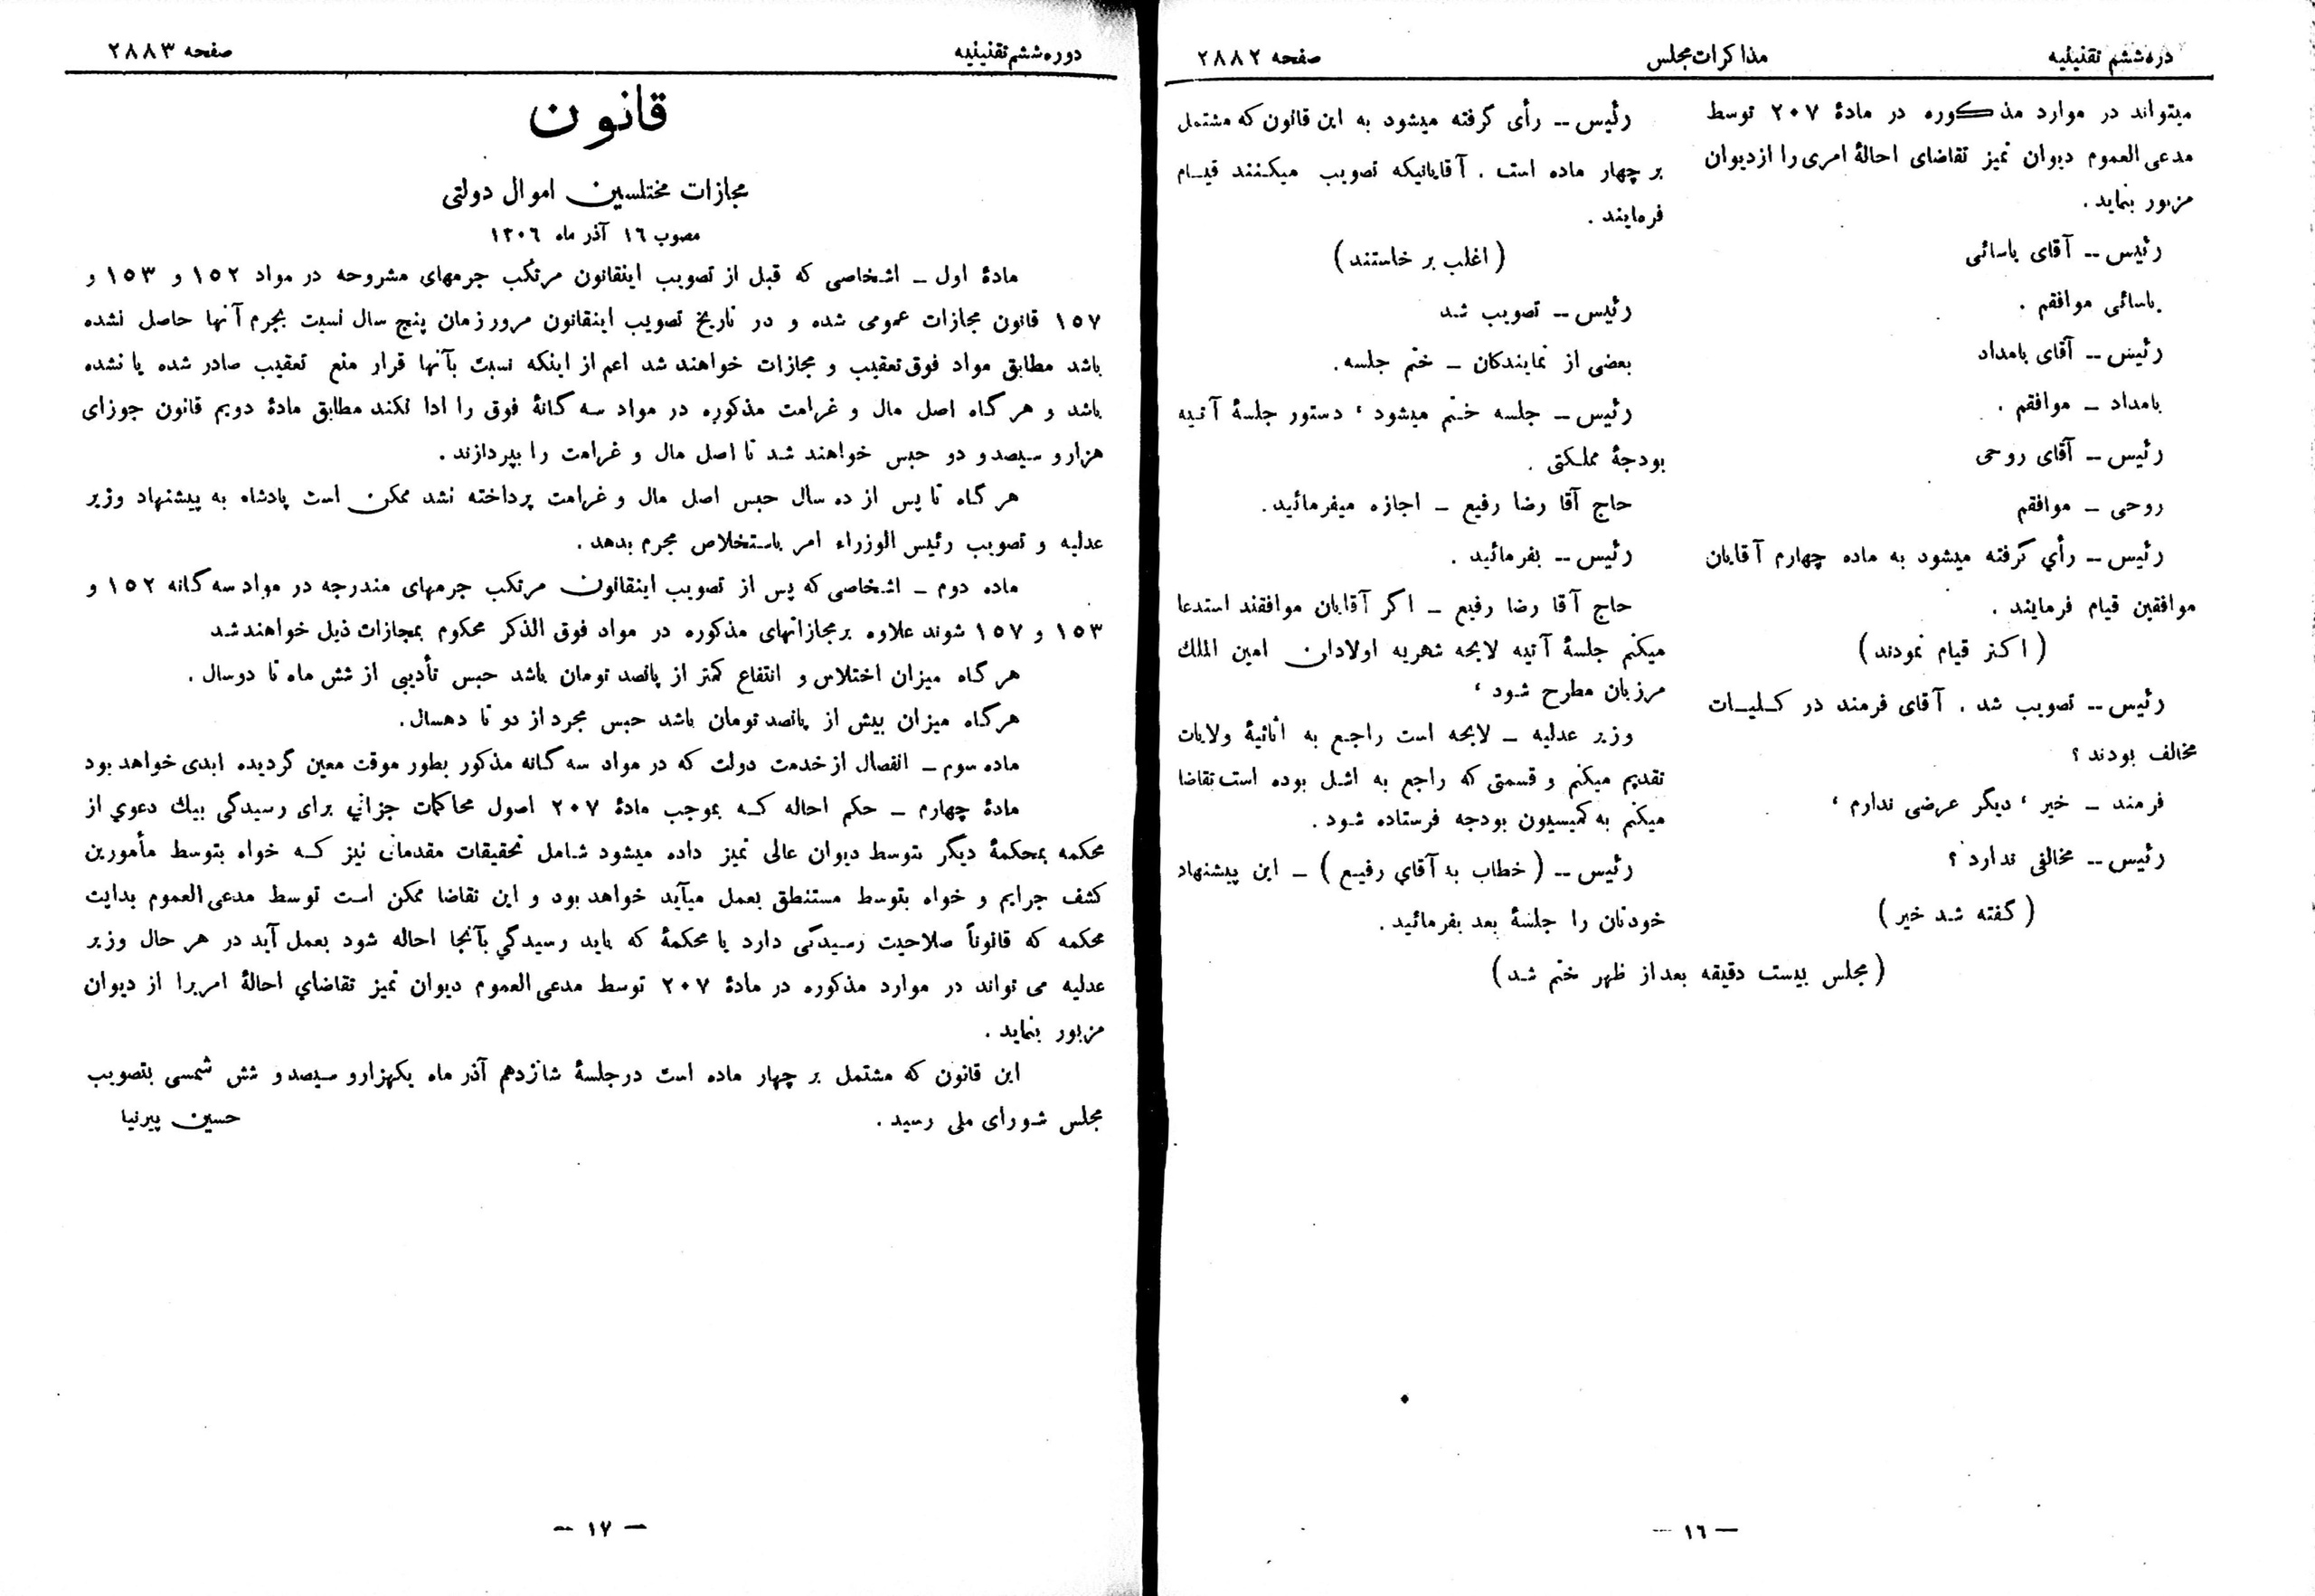 دره ششم تقنینیه
مذاکرات مجلس
صفحه ۲۸۸۲
میتواند در موارد مذکوره در مادهٔ ۲۰۷ توسط
مدعی العموم دیوان تمیز تقاضای احالهٔ امری را از دیوان
مزبور بنماید.
رئیس -- آقای یاسائی
یاسائی موافقم .
رئیس -- آقای بامداد
بامداد - موافقم .
رئیس -- آقای روحی
روحی - موافقم
رئیس -- رأي گرفته میشود به ماده چهارم آقایان
موافقین قیام فرمایند .
( اکثر قیام نمودند )
رئیس -- تصویب شد . آقای فرمند در کلیات
مخالف بودند ؟
فرمند - خیر ، دیگر عرضی ندارم ،
رئیس -- مخالفی ندارد ؟
( گفته شد خیر )
رئیس -- رأی گرفته میشود به این قانون که مشتمل
بر چهار ماده است . آقایانیکه تصویب میکنند قیام
فرمایند .
( اغلب بر خاستند )
رئیس -- تصویب شد
بعضی از نمایندکان - ختم جلسه.
رئیس - جلسه ختم میشود ، دستور جلسهٔ آتیه
بودجهٔ مملکتی .
حاج آقا رضا رفیع - اجازه میفرمائید.
رئیس -- بفرمائید .
حاج آقا رضا رفیع - اکر آقایان موافقند استدعا
میکنم جلسهٔ آتیه لایحه شهریه اولادان امین الملك
مرزبان مطرح شود ،
وزیر عدلیه - لایحه است راجع به اثاثیهٔ ولایات
تقدیم میکنم و قسمتی که راجع به اشل بوده است تقاضا
میکنم به کمیسیون بودجه فرستاده شود .
رئیس -- ( خطاب به آقاي رفیع ) - این پیشنهاد
خودتان را جلسهٔ بعد بفرمائید.
( مجلس بیست دقیقه بعد از ظهر ختم شد )
-- ١٦ --
دوره ششم تقنینیه
صفحه ۲۸۸۳
قانون
مجازات مختلسین اموال دولتی
مصوب ١٦ آذر ماه ١٣٠٦
مادهٔ اول - اشخاصی که قبل از تصویب اینقانون مرتکب جرمهای مشروحه در مواد ١٥٢ و ١٥٣ و
١٥٧ قانون مجازات عمومی شده و در تاریخ تصویب اینقانون مرور زمان پنج سال نسبت بجرم آنها حاصل نشده
باشد مطابق مواد فوق تعقیب و مجازات خواهند شد اعم از اینکه نسبت بآنها قرار منع تعقیب صادر شده یا نشده
باشد و هر گاه اصل مال و غرامت مذکوره در مواد سه کانهٔ فوق را ادا نکند مطابق مادهٔ دویم قانون جوزای
هزار و سیصد و دو حبس خواهند شد تا اصل مال و غرامت را بپردازند .
هر گاه تا پس از ده سال حبس اصل مال و غرامت پرداخته نشد ممکن است پادشاه به پیشنهاد وزیر
عدلیه و تصویب رئیس الوزراء امر باستخلاص مجرم بدهد .
ماده دوم - اشخاصی که پس از تصویب اینقانون مرتکب جرمهای مندرجه در مواد سه کانه ١٥٢ و
١٥٣ و ١٥٧ شوند علاوه بر مجازاتهای مذکوره در مواد فوق الذکر محکوم بمجازات ذیل خواهند شد
هر گاه میزان اختلاس و انتفاع کمتر از پانصد تومان باشد حبس تأدیبی از شش ماه تا دوسال .
هرگاه میزان بیش از پانصد تومان باشد حبس مجرد از دو تا دهسال.
ماده سوم - انفصال از خدمت دولت که در مواد سه کانه مذکور بطور موقت معین گردیده ابدی خواهد بود
مادهٔ چهارم - حکم احاله که بموجب مادهٔ ۲۰۷ اصول محاکمات جزائي برای رسیدگی بیك دعوي از
محکمه بمحکمهٔ دیگر بتوسط دیوان عالی تمیز داده میشود شامل تحقیقات مقدماتی نیز که خواه بتوسط مأمورین
کشف جرایم و خواه بتوسط مستنطق بعمل میآید خواهد بود و این تقاضا ممکن است توسط مدعی العموم بدایت
محکمه که قانوناً صلاحیت رسیدگی دارد یا محکمهٔ که باید رسیدگي بآنجا احاله شود بعمل آید در هر حال وزیر
عدلیه می تواند در موارد مذکوره در مادهٔ ۲۰۷ توسط مدعی العموم دیوان تمیز تقاضاي احالهٔ امریرا از دیوان
مزبور بنماید .
این قانون که مشتمل بر چهار ماده است در جلسهٔ شانزدهم آذر ماه یکهزار و سیصد و شش شمسی بتصویب
مجلس شورای ملی رسید .
حسین پیرنیا
-- ١٧ --